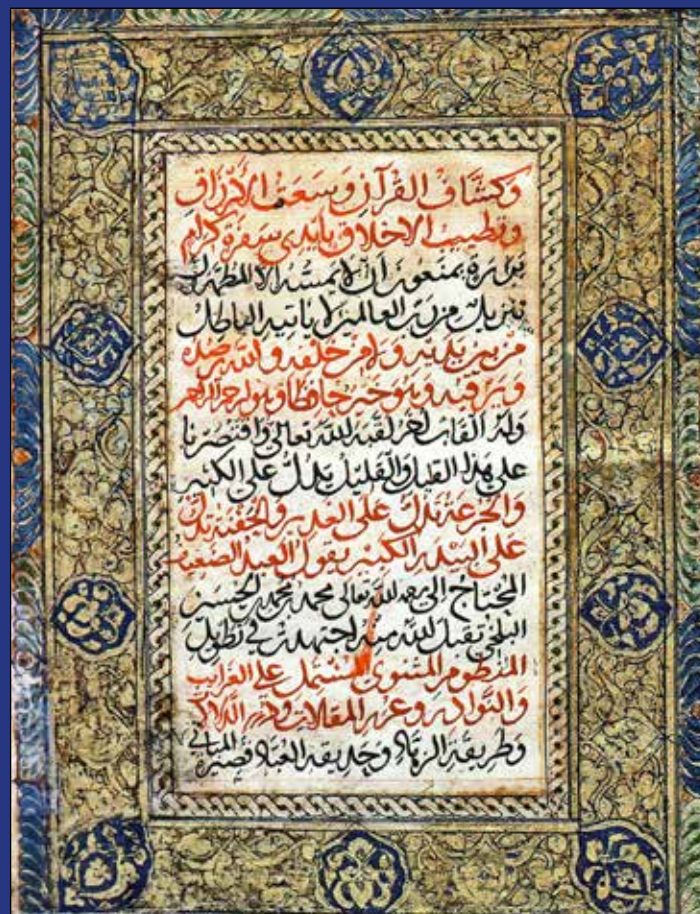 وكشاف القرآن وسعة الأرزاق
وتطييب الاخلاق بأيدى سفرة كرام
بررة يمنعون ان لا يمسه الا المطهرون
تنزيل من رب العالمين لا ياتيه الباطل
من بين يديه ولا من خلفه والله يرصده
ويرقبه وهو خير حافظا وهو ارحم الراحمين
وله القاب اخر لقبه الله تعالى واقتصرنا
على هذا القليل والقليل يدل على الكثير
والجرعة تدل على الغدير والحفنة تدل
على البيدر الكبير يقول العبد الضعيف
المحتاج الى رحمة الله تعالى محمد بن محمد بن الحسين
البلخى تقبل الله منه اجتهدت في تطويل
المنظوم المثنوى المشتمل على الغرايب
والنوادر وغرر المقالات ودرر الدلالات
وطريقة الزهاد وحديقة العباد قصيرة المبانى